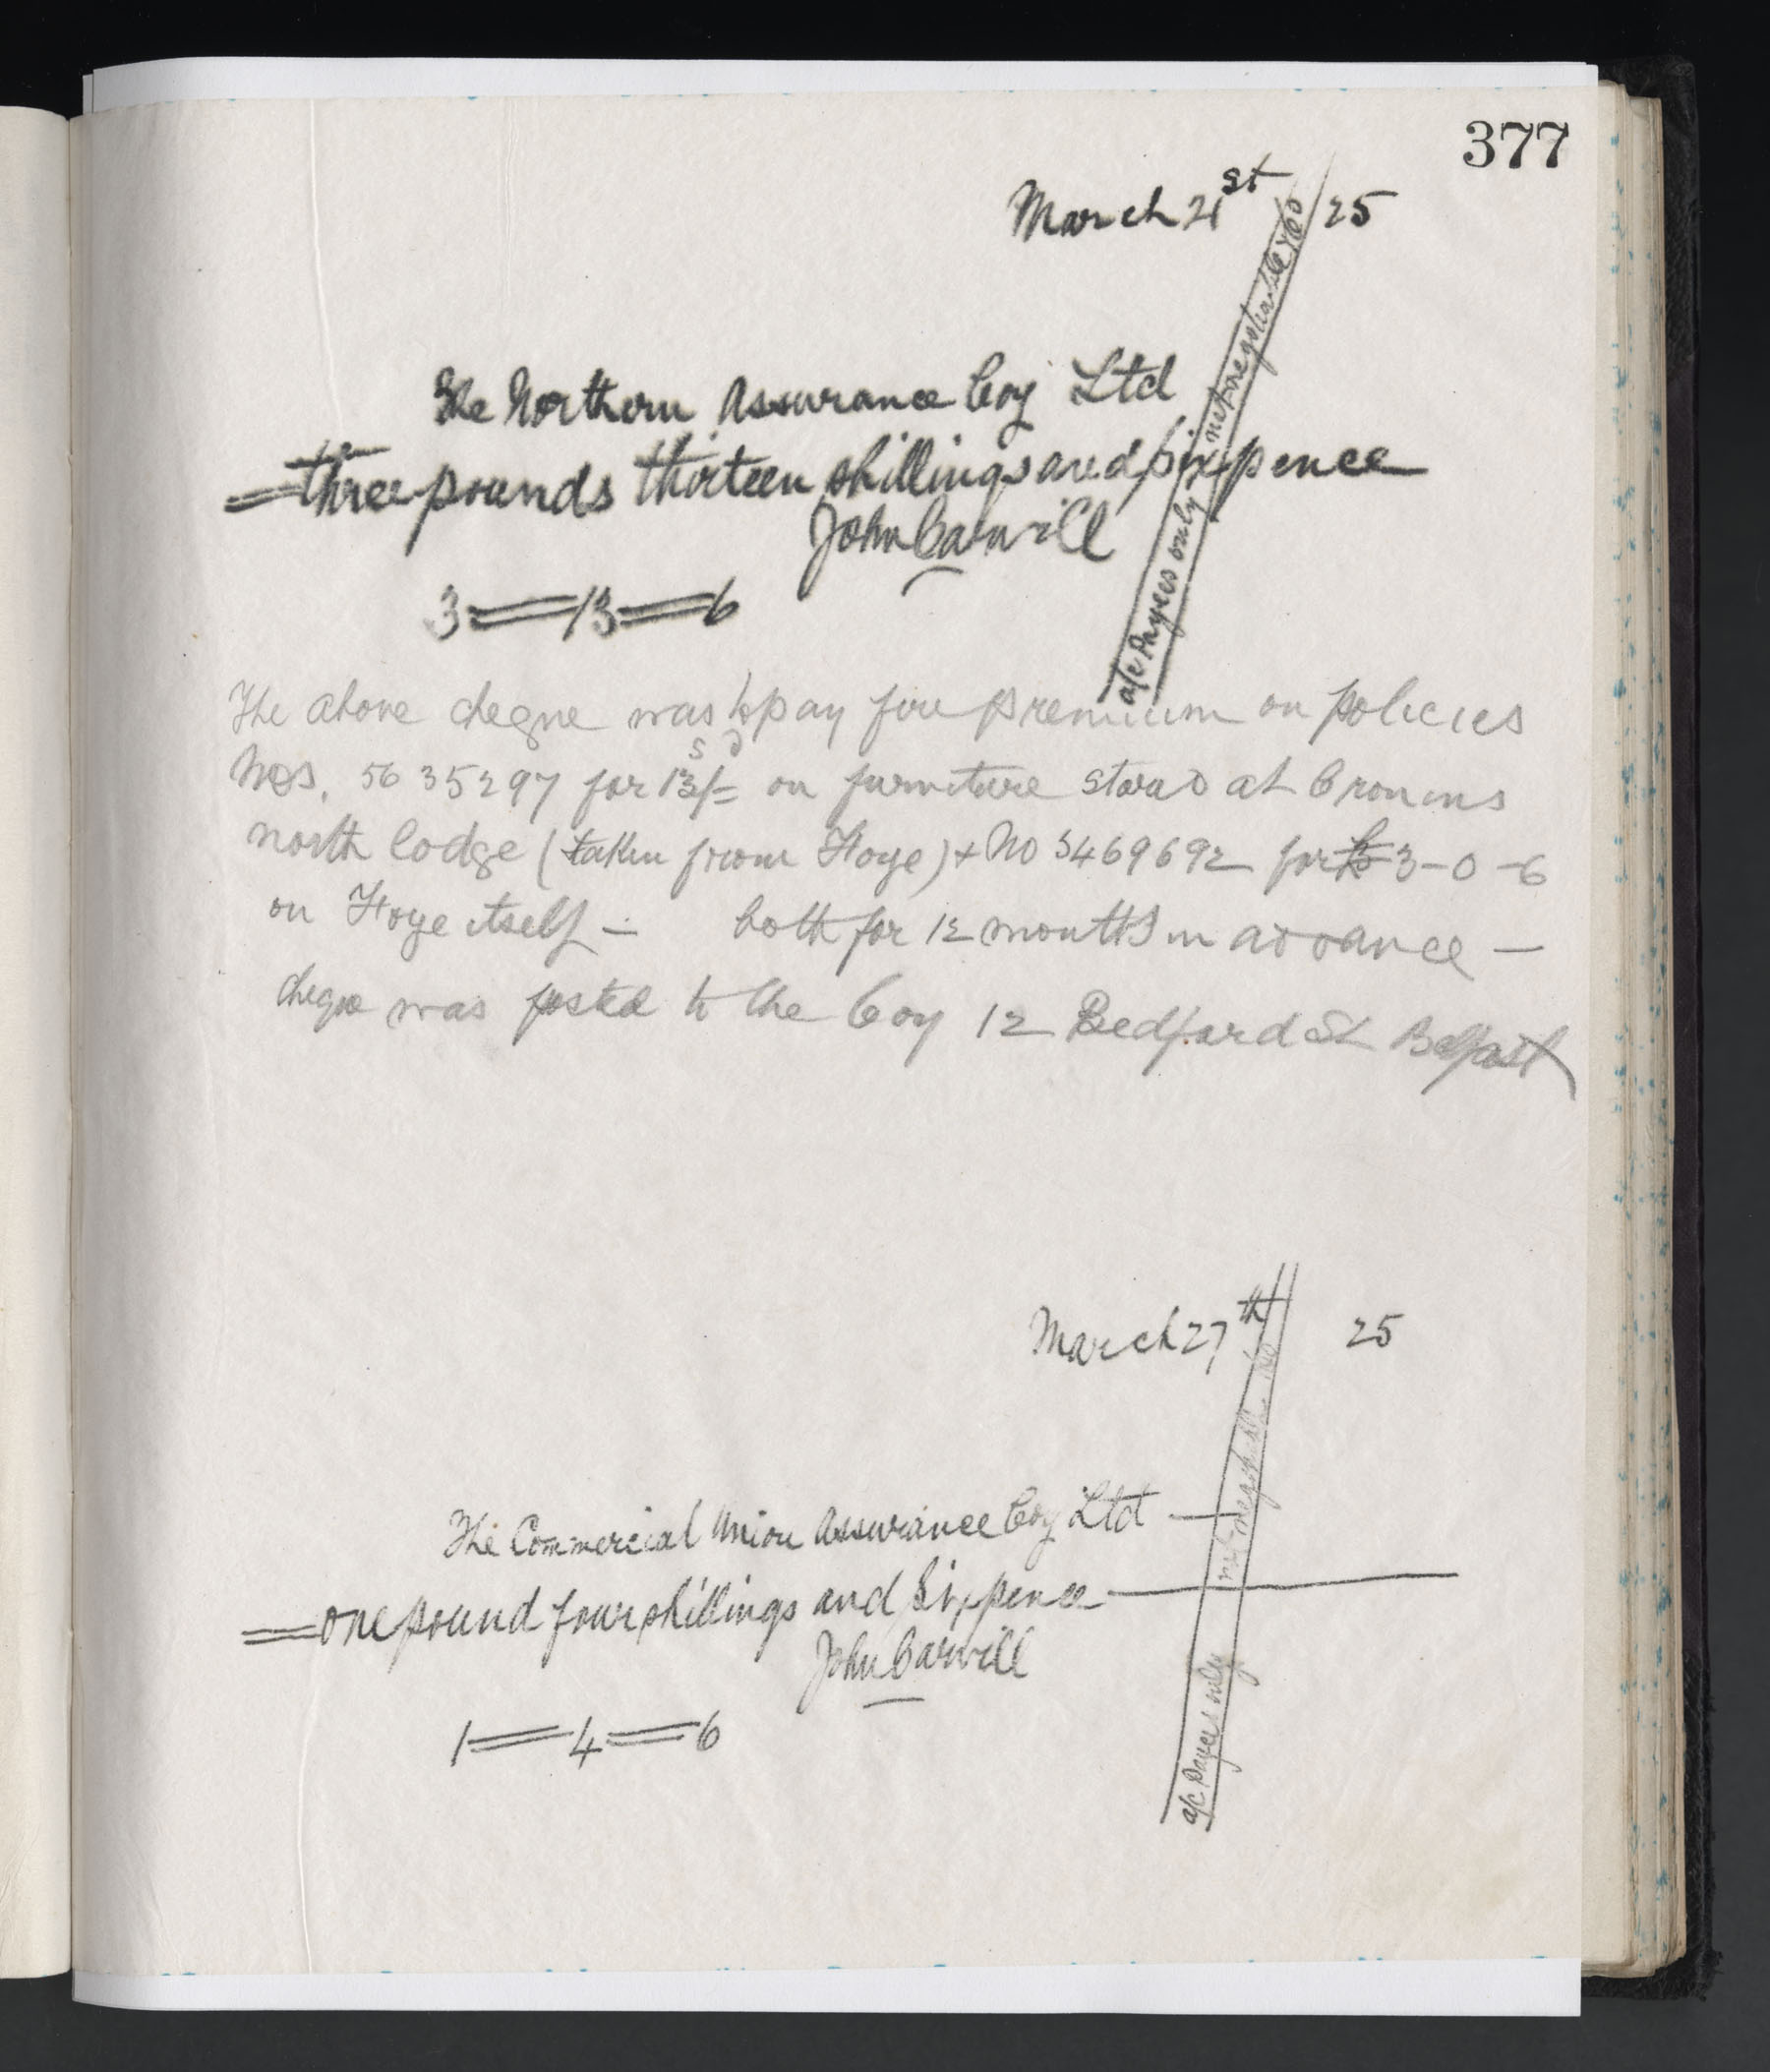 377
March 21st /25
The Northern Assurance Coy Ltd
three pounds thirteen shillings and sixpence
John Carvill
3=13=6
a/c Payees only not negotiable & Co
The above cheque was to pay fire premium on policies
Nos. 5635297 for 13s/=d on furniture stored at Cronins
north lodge (taken from Hoye) + No 5469692 for 3-0-6
on Hoye itself — both for 12 months in advance —
cheque was posted to the Coy 12 Bedford St Belfast
March 27th 25
The Commercial Union Assurance Coy Ltd —
=one pound four shillings and sixpence—
John Carvill
1=4=6
a/c Payees only not negotiable & Co